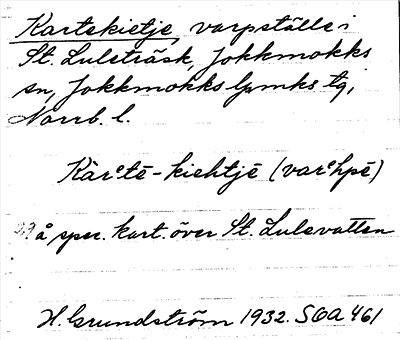 Kartekietje, varpställe i
St. Luleträsk, Jokkmokks
sn, Jokkmokks lpmks tg,
Norrb. l.
Kàrᵉtē-kiehtjē (varᵉhpē)
å spec. kart. över St. Lulevatten
H. Grundström 1932. SOA 461